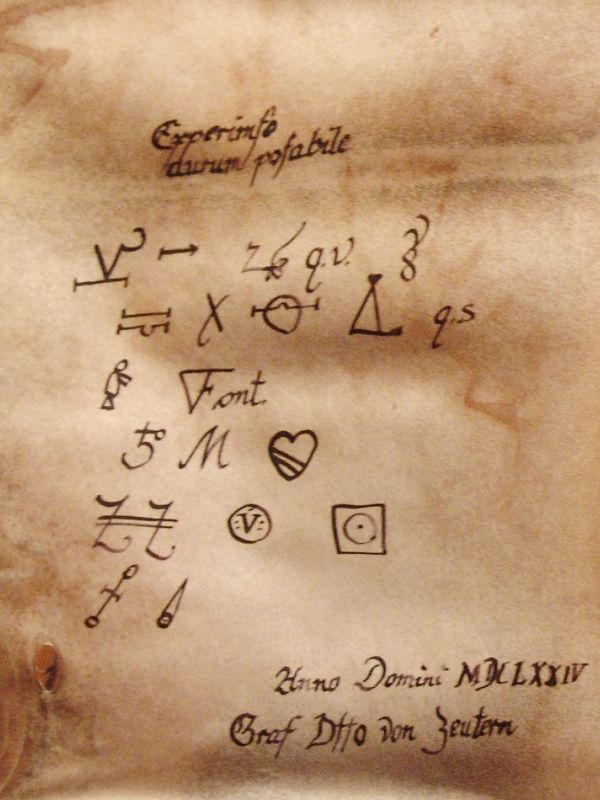 Experimfo
durum pofabile
q.v.
X q.s
Font.
M
V
Anno Domini MDCLXXIV
Graf Otto von Zeutern